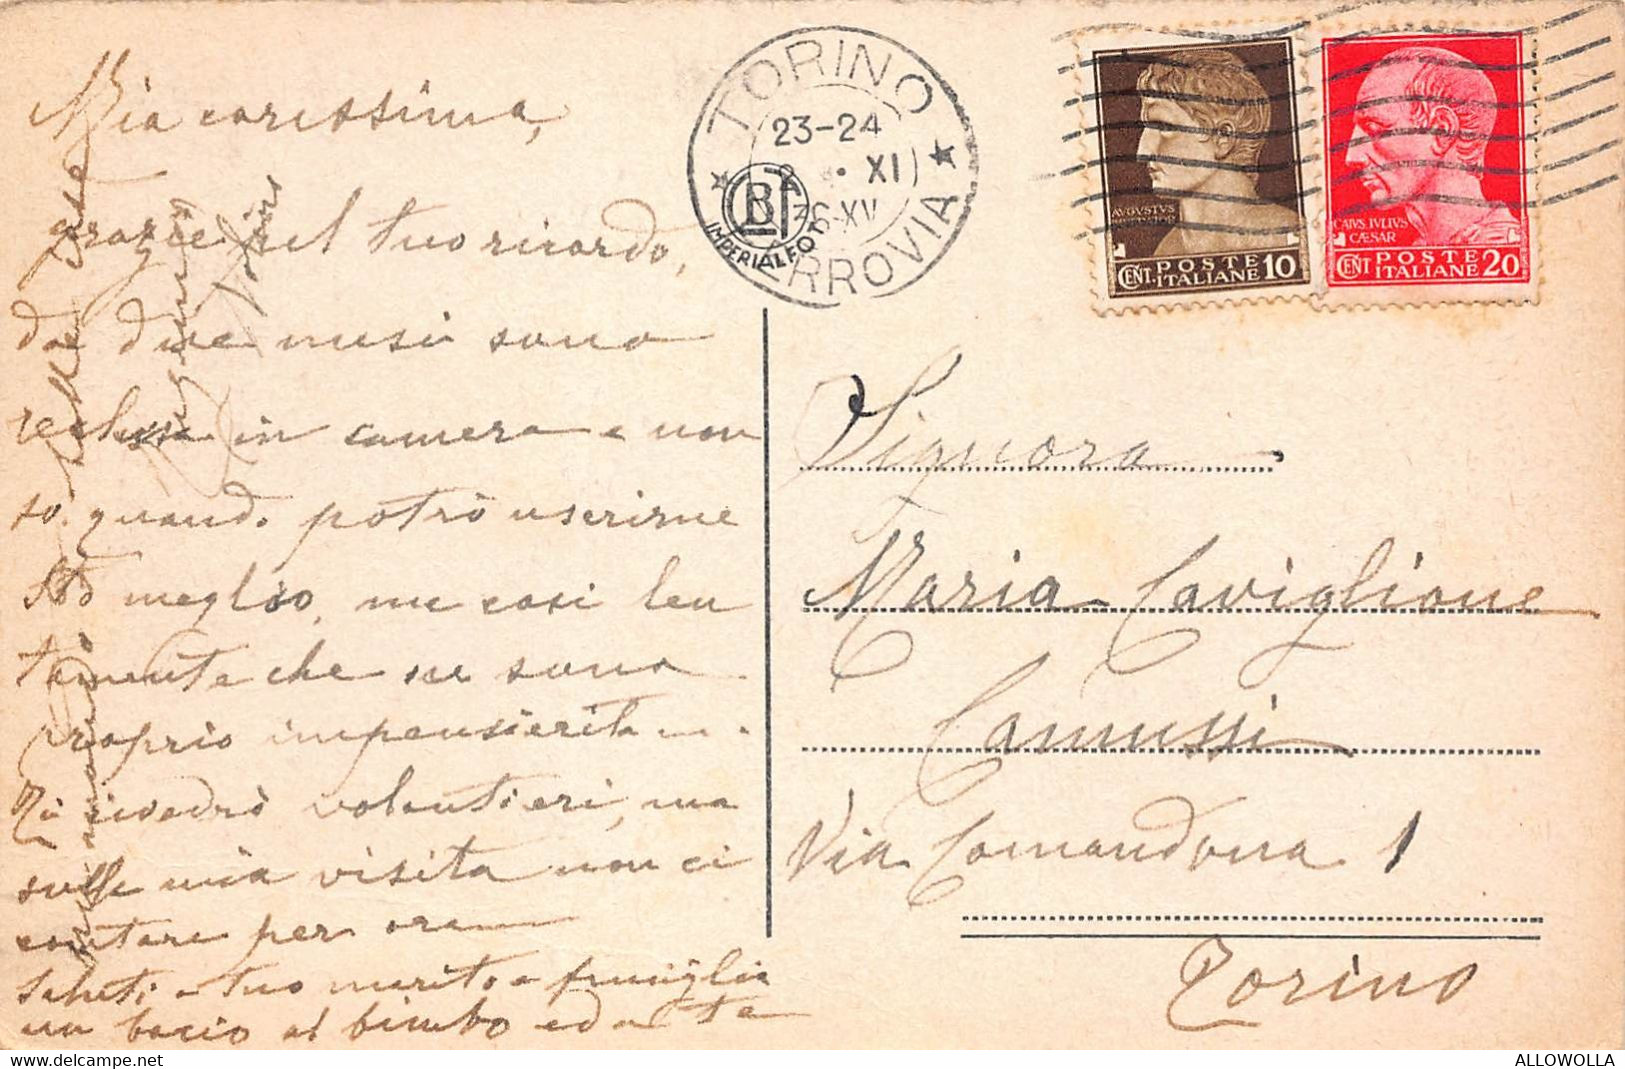 Mia carissima,
grazie del tuo ricordo,
da due mesi sono
reclusa in camera e non
so quando potrò uscirne
Sto meglio, ma così len
tamente che ne sono
proprio impensierita
Ti rivedrò volentieri, ma
sulla mia visita non ci
contare per ora
Saluti a tuo marito e famiglia
un bacio al bimbo ed a te
TORINO
FERROVIA
23-24
XI
IMPERIALFOT
AVGVSTVS
CENT. POSTE ITALIANE 10
CAIVS.IVLIVS
CÆSAR
CENT POSTE ITALIANE 20
Signora
Maria Caviglione
Cannussi
Via Comandona 1
Torino
https://www.delcampe.net
ALLOWOLLA